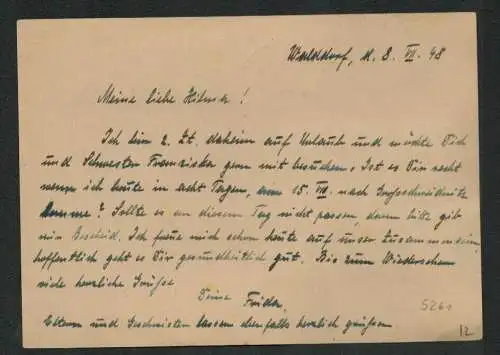 Walddorf, d. 8. VII. 48
Meine liebe Hilma!
Ich bin z. Zt. daheim auf Urlaub und möchte Dich
und Schwester Franziska gern mit besuchen. Ist es Dir recht
wenn ich heute in acht Tagen, am 15. VII. nach Großschweidnitz
komme? Sollte es an diesem Tag nicht passen, dann bitte gib
mir Bescheid. Ich freue mich schon heute auf unser Zusammensein,
hoffentlich geht es Dir gesundheitlich gut. Bis zum Wiedersehen
viele herzliche Grüße
Deine Frieda,
Eltern und Geschwister lassen ebenfalls herzlich grüßen.
5260
12